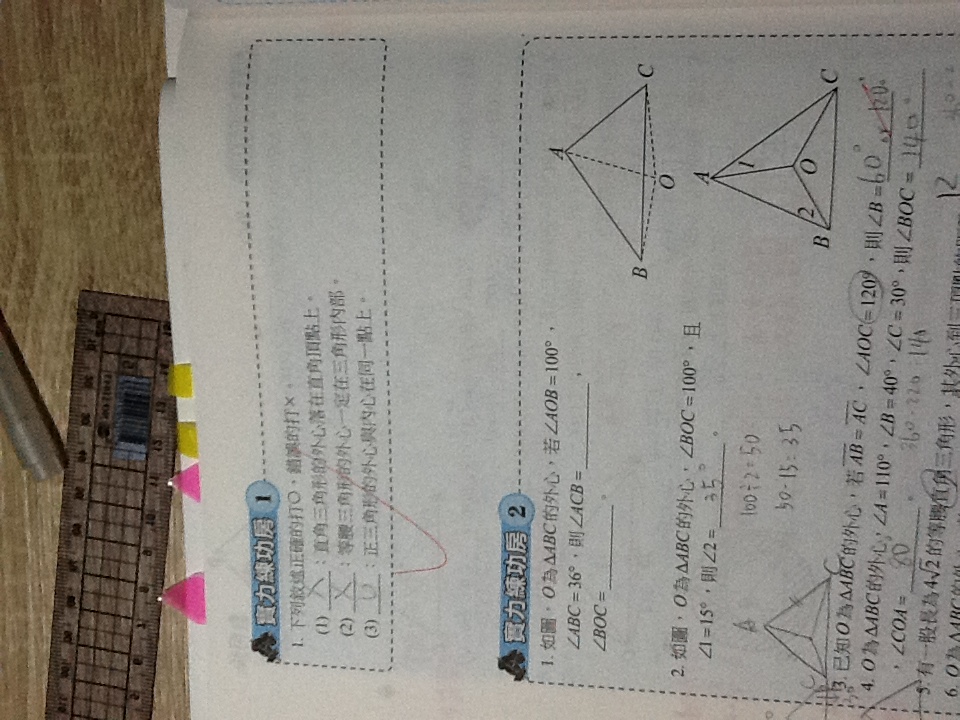 實力練功房 1
1. 下列敘述正確的打○，錯誤的打×。
(1) X ：直角三角形的外心落在直角頂點上。
(2) X ：等腰三角形的外心一定在三角形內部。
(3) O ：正三角形的外心與內心在同一點上。
實力練功房 2
1. 如圖，O為△ABC的外心，若∠AOB=100°，
∠ABC=36°，則∠ACB=＿＿＿，
∠BOC=＿＿＿。
A
B
C
O
2. 如圖，O為△ABC的外心，∠BOC=100°，且
∠1=15°，則∠2= 35°。
100÷2=50
50-15=35
A
1
2
B
O
C
A
C
3. 已知O為△ABC的外心，若AB=AC，∠AOC=120°，則∠B=60°
4. O為△ABC的外心，∠A=110°，∠B=40°，∠C=30°，則∠BOC=140°
，∠COA= 80 。
360-220=140
5. 有一股長為4√2的等腰直角三角形，其外心到三頂點的
12
6. O為△ABC的